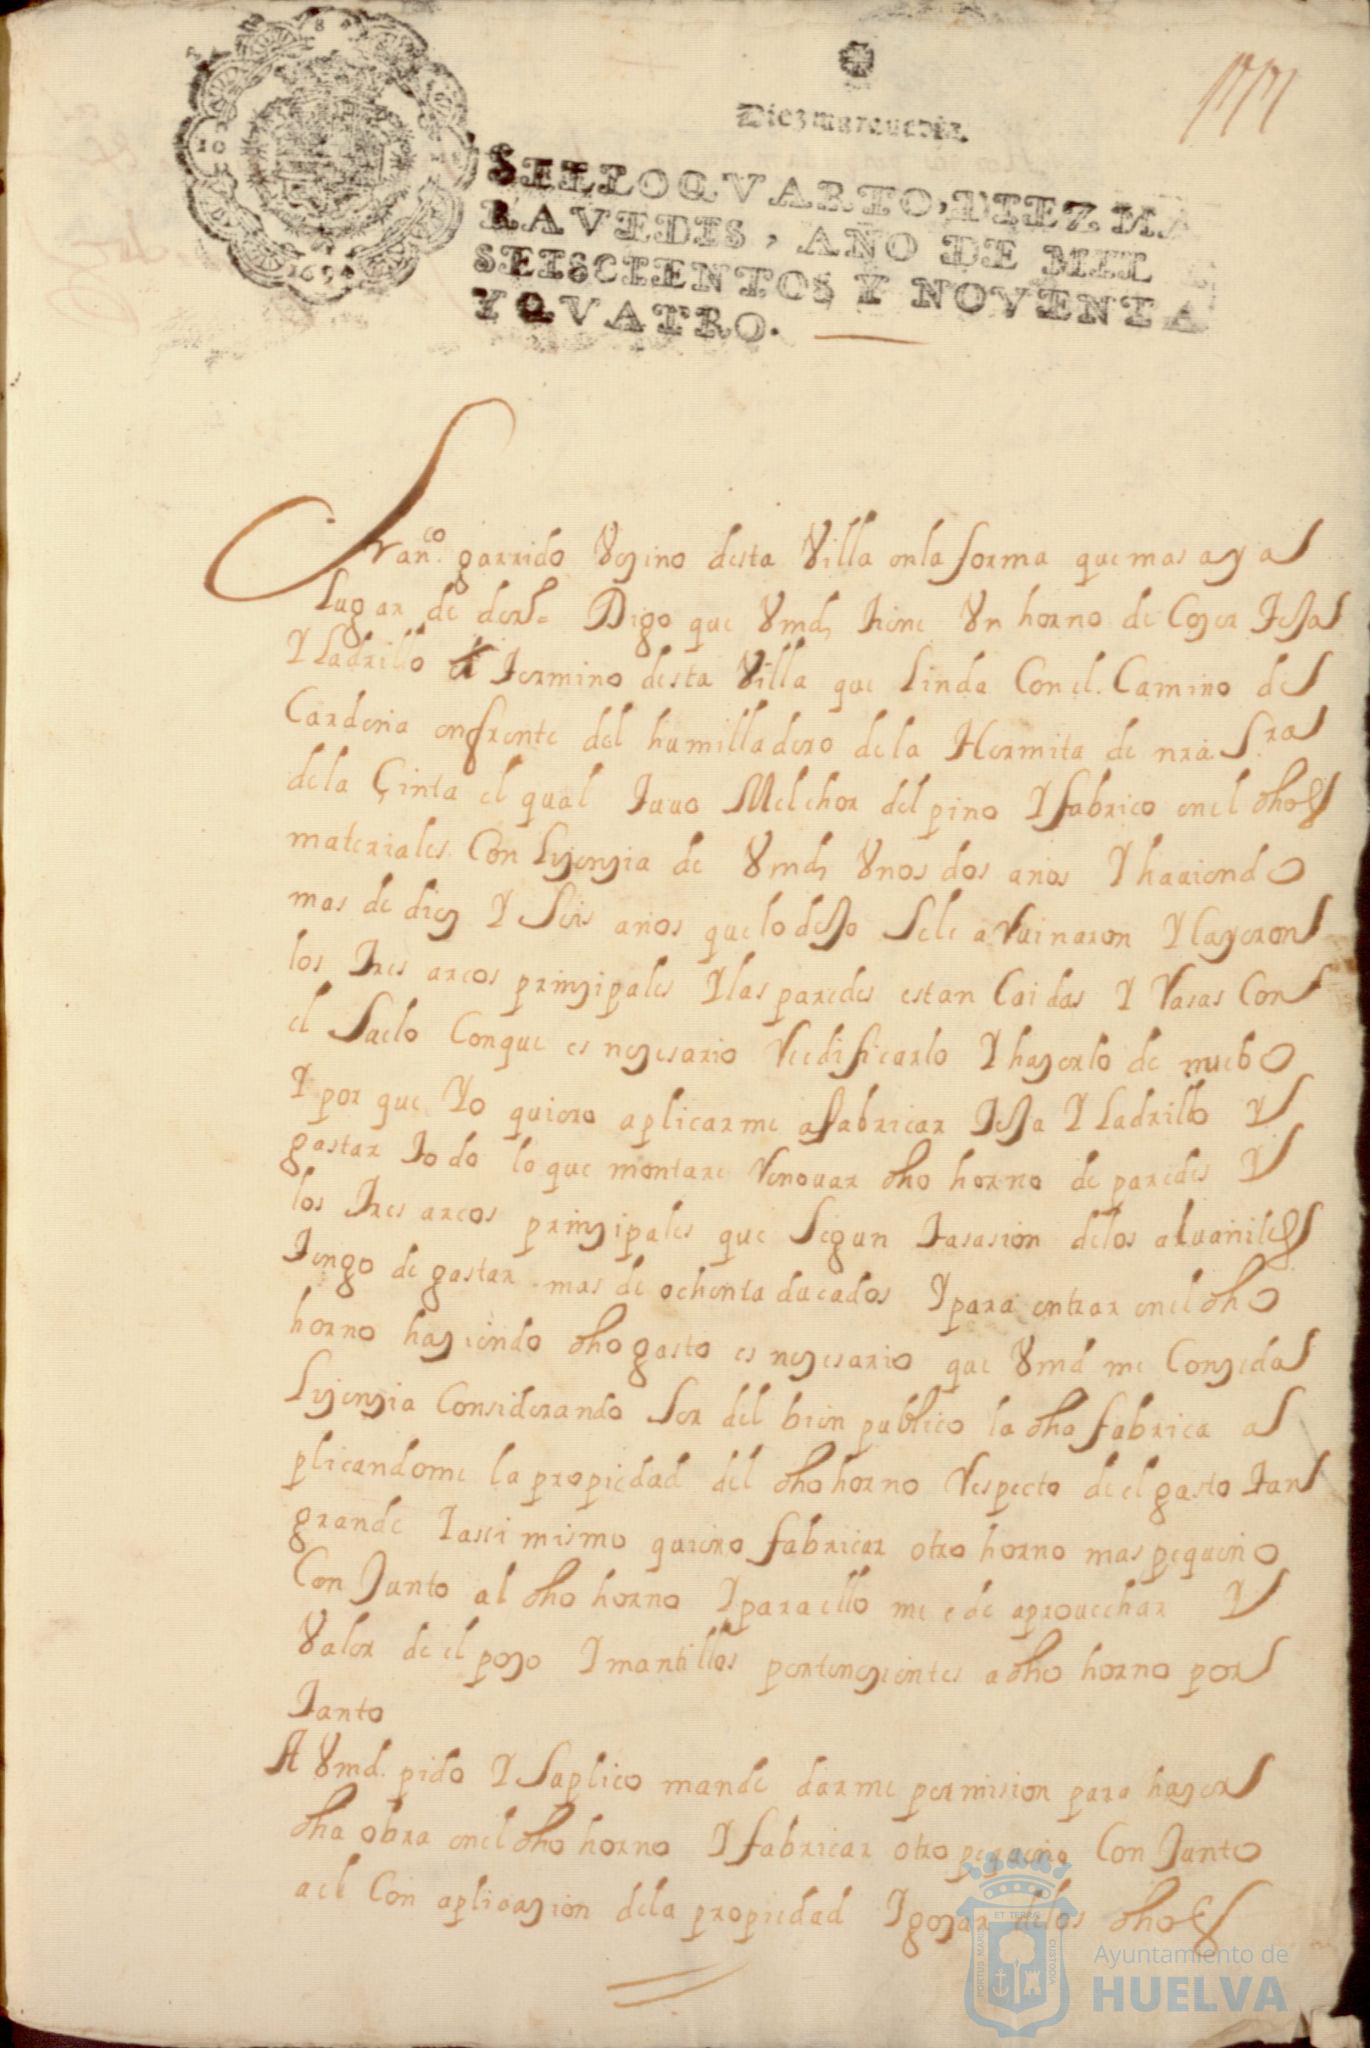 Diez maravedis.
SELLO QVARTO, DIEZ MA
RAVEDIS, AÑO DE MIL
SEISCIENTOS Y NOVENTA
Y QVATRO.
1694
Franco. garrido Vezino desta Villa en la forma que mas aya
lugar de derho Digo que Vmd tiene Vn horno de Cozer teja
Y Ladrillo termino desta Villa que linda Con el Camino de
Cardeña enfrente del humilladero de la Hermita de nra Sra
de la Çinta el qual tuuo Melchor del pino Y fabrico en el dhos
materiales Con lizenzia de Vmd Vnos dos años Y hauiendo
mas de diez Y seis años que lo dejo se le a Ruinaron Y Cayeron
los tres arcos prinzipales Y las paredes estan Caidas Y Rasas Con
el Suelo Con que es nezesario Reedificarlo Y hazerlo de nuebo
Y por que Yo quiero aplicarme a fabricar teja Y Ladrillo Y
gastar todo lo que montare Renouar dho horno de paredes Y
los tres arcos prinzipales que Segun tasasion de los aluañiles
tengo de gastar mas de ochenta ducados Y para entrar en el dho
horno haziendo dho gasto es nezesario que Vmd me Conzeda
Lizenzia Considerando Ser del bien publico la dha fabrica a
plicandome la propiedad del dho horno Respecto de el gasto tan
grande Y assi mismo quiero fabricar otro horno mas pequeño
Con Junto al dho horno Y para ello me e de aprouechar Y
Valer de el pozo Y mantillos pertenezientes a dho horno por
tanto
A Vmd. pido Y Suplico mande darme permision para hazer
dha obra en el dho horno Y fabricar otro pequeño Con Junto
a el Con aplicazion de la propiedad Y gozar de los dhos
ET TERRAE
PORTUS MARIS
CUSTODIA
Ayuntamiento de
HUELVA